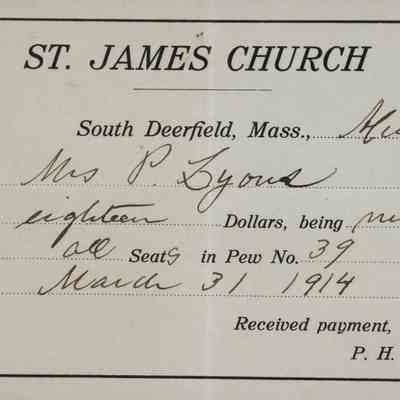 ST. JAMES CHURCH
South Deerfield, Mass.,
Mrs P. Lyons
eighteen Dollars, being
all Seats in Pew No. 39
March 31 1914
Received payment,
P. H.